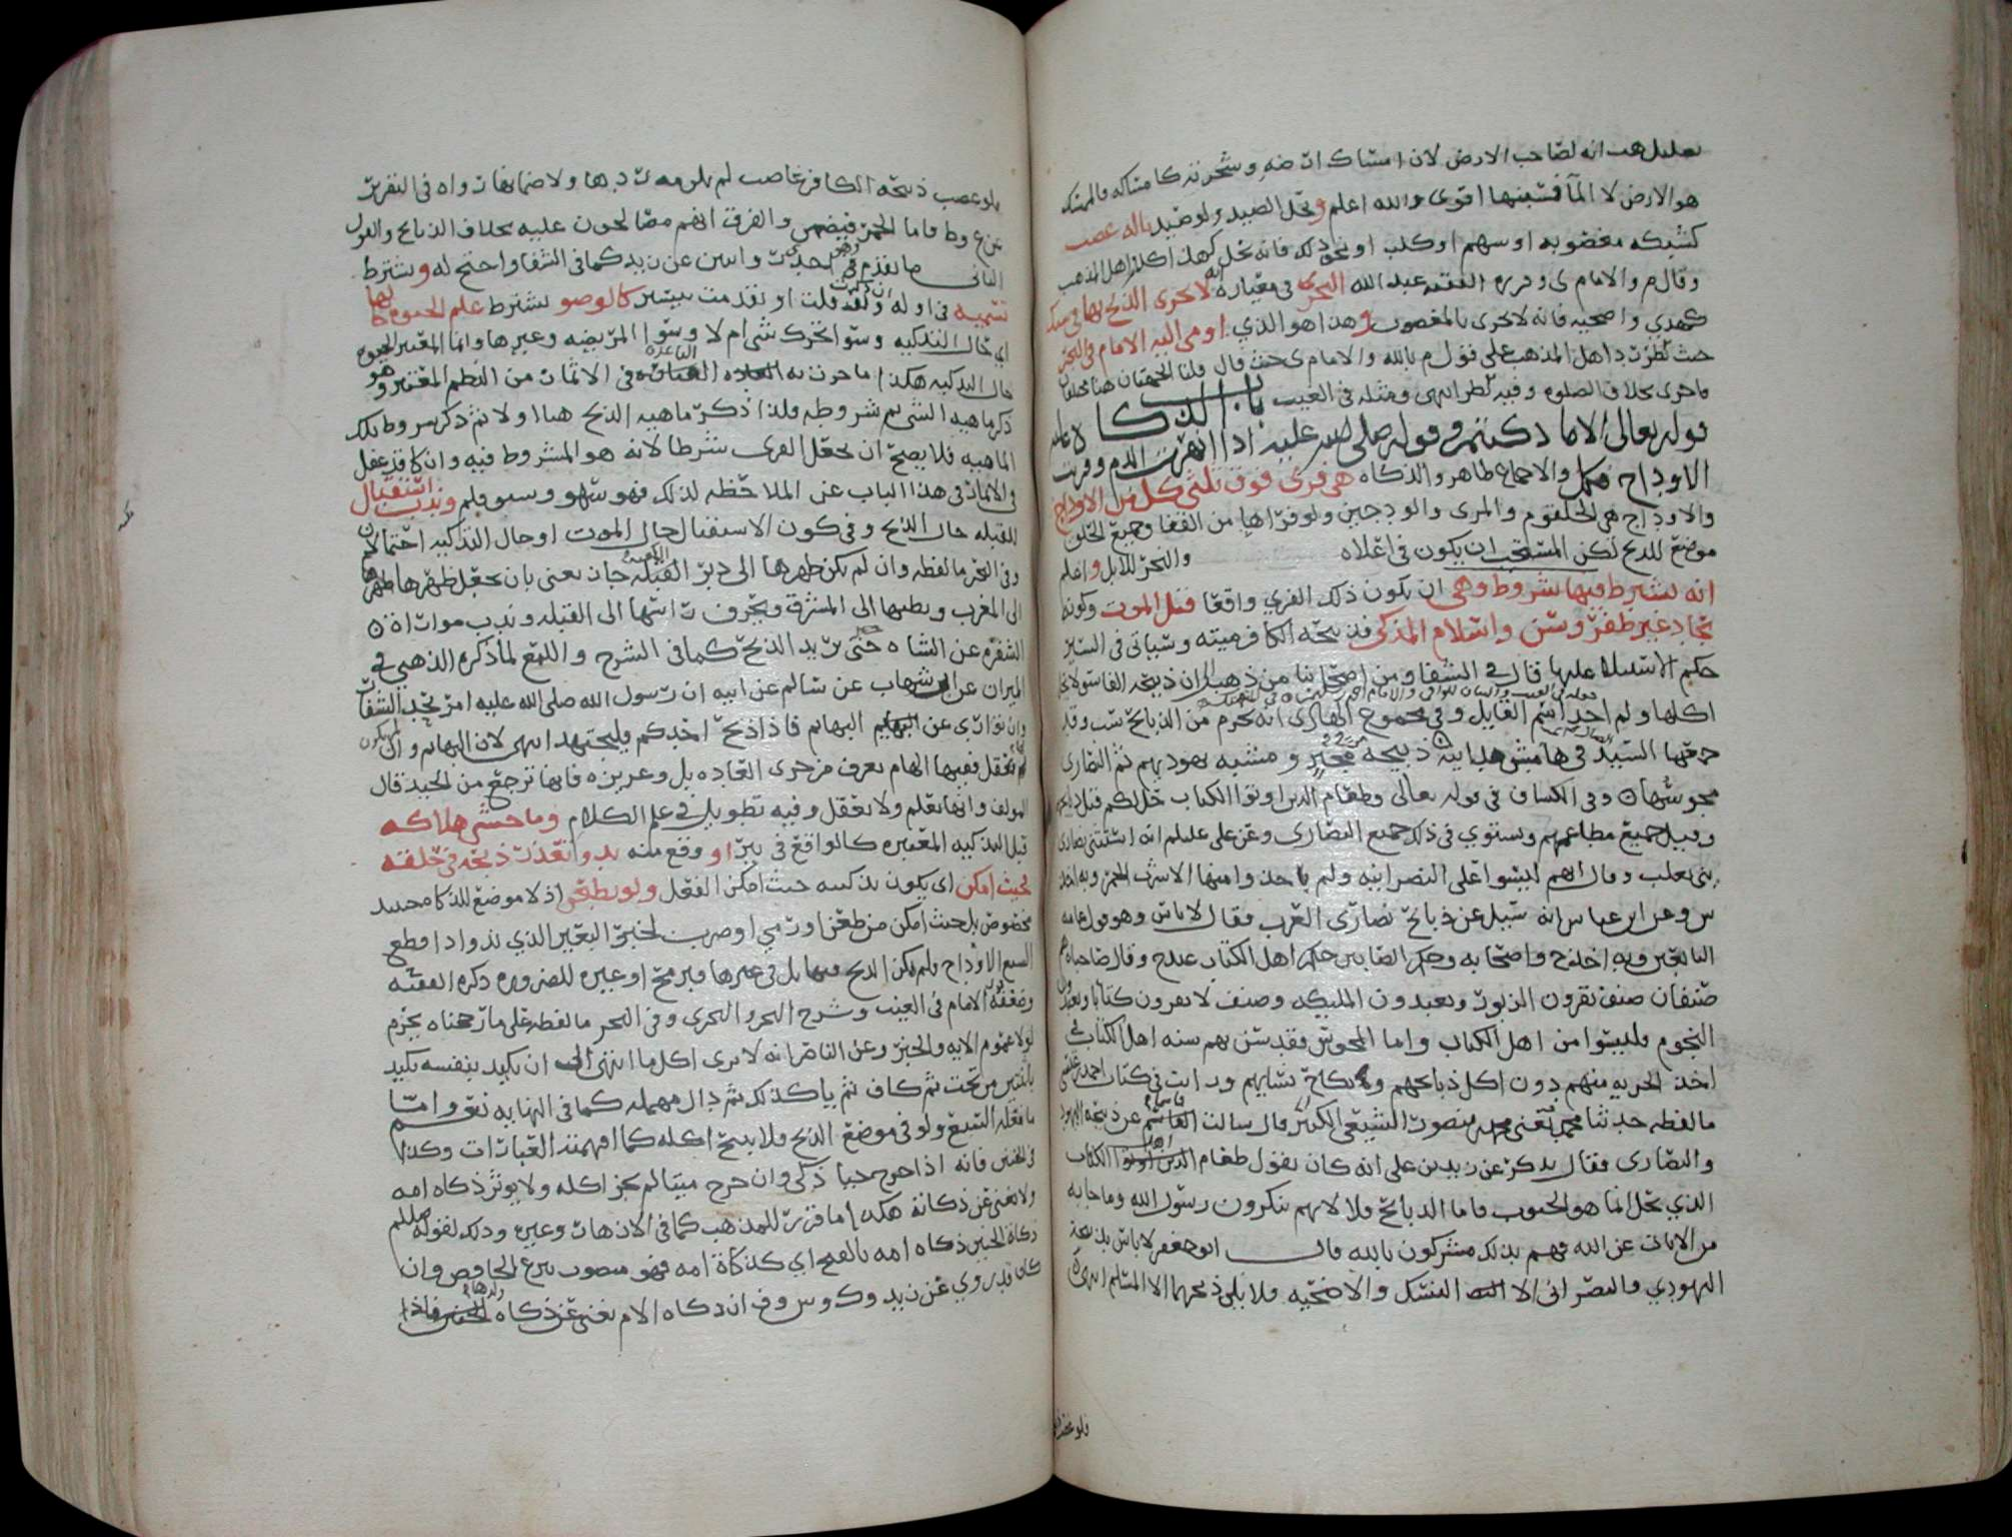 تعليل هب انه لصاحب الارض لان امساك ارضه وشجرته كامساكه فالممسك
هو الارض لا الماء فشبهها اقوى والله اعلم وتحل الصيد ولو صيد باله غصب
كشبكه مغصوبه او سهم او كلب او نحو ذلك فانه تحل كهذا اهل المذهب
وقال م والامام ى الفقيه عبد الله النجري في معياره لا يجزى الذبح بها في نسك
كهدي واضحيه فانه لا يجزى بالمغصوب وهذا هو الذي اومى اليه الامام في البحر
حيث لطرد اهل المذهب على قول م بالله والامام ى حيث قال قلنا الجهتان هنا مختلفتان
ماجرى بخلاف الصلوه وفيه نظر انتهى ومثله في الغيث باب الذكاه
قوله تعالى الا ما ذكيتم وقوله صلى الله عليه اذا انهرت الدم وفريت
الاوداج فكل والاجماع ظاهر والذكاه هى فرى فوق ثلثى كل من الاوداج
والاوداج هي الحلقوم والمرى والودجين ولو فراها من القفا وجميع الحلق
موضع للذبح لكن المستحب ان يكون في اعلاه والنحر للابل واعلم
انه يشترط فيها شروط وهى ان يكون ذلك الفري واقعا قبل الموت وكونه
بحاد غير ظفر وسن واسلام المذكي فذبيحه الكافر ميته وسياتى في السير
حكم الاستيلا عليها قال في الشفا ومن اصحابنا من ذهب الى ان ذبيحه الفاسق لا تحل
اكلها ولم اجد اسم القايل وفى مجموع الهادى انه يحرم من الذبايح ست وقد
جمعها السيد في هامش هدايته ذبيحه مجبر ومشبه يهوديهم ثم النصارى
مجوسها وفى الكشاف في قوله تعالى وطعام الذين اوتوا الكتاب حل لكم قيل ذبايحهم
وقيل جميع مطاعمهم ويستوي في ذلك جميع النصارى وعن على عليلم انه استثنى نصارى
بنى تغلب وقال انهم ليسوا على النصرانيه ولم ياخذوا منها الا شرب الخمر وبه اخذ
س وعن ابن عباس انه سيل عن ذبايح نصارى العرب فقال لا باس وهو قول عامه
التابعين وبه اخذ ح واصحابه وحكم الصابين حكم اهل الكتاب عند ح وقال صاحباه هم
صنفان صنف يقرون الزبور ويعبدون المليكه وصنف لا يقرون كتابا ويعبدون
النجوم فليسوا من اهل الكتاب واما المجوس فقد سن بهم سنه اهل الكتاب في
اخذ الجزيه منهم دون اكل ذبايحهم ونكاح نسايهم ورايت في كتاب احمد بن عيسى
ما لفظه حدثنا محمد يعنى محمد بن منصور الشيعي الكبير قال سالت القاسم عن ذبيحه اليهود
والنصارى فقال يذكر عن زيد بن على انه كان يقول طعام الذين اوتوا الكتاب
الذي تحل انما هو الحبوب فاما الذبايح فلا لانهم ينكرون رسول الله وماجا به
من الايات عن الله فهم بذلك مشركون بالله قال ابو جعفر لا باس بذبيحه
اليهودي والنصرانى الا النسك والاضحيه فلا يلى ذبحها الا المسلم انتهى
فلو غصب
فلو غصب ذبيحه الكافر غاصب لم يلزمه ردها ولا ضمانها رواه في التقرير
عن ع وط واما الخمر فيضمن والفرق انهم مصالحون عليه بخلاف الذبايح والقول
الثانى ما تقدم واسن عن زيد كما في الشفا واحتج له وتشترط
تسميه في اوله ان ذكرت وان قلت او تقدمت بيسير كالوضو يشترط علم الحيوه لها
اي حال التذكيه وسوا تحرك شى ام لا وسوا المريضه وغيرها وانما المعتبر الحيوه
حال التذكيه هكذا ما جرت به القاعده في الاثمار من النظم المعتبر وهو
ذكر ماهيه الشى ثم شروطه فلذا ذكر ماهيه الذبح هنا اولا ثم ذكر شروط تلك
الماهيه فلا يصح ان يجعل الفرى شرطا لانه هو المشروط فيه وان كان قد غفل
في الاثمار في هذا الباب عن الملاحظه لذلك فهو سهو وسبق قلم وندب استقبال
القبله حال الذبح وفى كون الاستقبال حال الموت او حال التذكيه احتمالان
وفى البحر ما لفظه وان لم يكن ظهرها الى دبر الكعبه جاز يعنى بان يجعل ظهرها
الى المغرب وبطنها الى المشرق ويحرف راسها الى القبله وندب مواراه
الشفره عن الشاه حتى يريد الذبح كما في الشرح واللمع لما ذكره الذهبي في
الميزان عن ابن شهاب عن سالم عن ابيه ان رسول الله صلى الله عليه امر بحد الشفار
وان توارى عن البهايم فاذا ذبح احدكم فليجهز انتهى لان البهايم وان لم يكن
لها عقل ففيها الهام يعرف من جرى العاده بل وغريزه فانها ترجع من الحيد قال
المولف وانها تعلم ولا تعقل وفيه تطويل في علم الكلام وما خشى هلاكه
قبل التذكيه المعتبره كالواقع في بير او وقع منه ند وتعذرت ذبحه في حلقه
حيث امكن اى يكون تذكيته حيث امكن الفعل ولو بطعن اذ لا موضع للذكاه حينيذ
مخصوص بل حيث امكن من طعن او رمي او ضرب لخبر البعير الذي ند واذا قطع
السبع الاوداج ولم يمكن الذبح فيها بل في غيرها فبرمح او غيره للضروره ذكره الفقيه
وضعفه الامام في الغيث وشرح البحر والنجرى وفى البحر ما لفظه على ما رجحناه يحرم
لولا عموم الايه والخبر وعن الناصر انه لا يرى اكل ما انتهى الى ان يكيد بنفسه يكيد
باثنين من تحت ثم كاف ثم يا كذلك ثم دال مهمله كما في النهايه نعم واما
ما فعله السبع ولو في موضع الذبح فلا يبيح اكله كما افهمته العبارات وكذا
في الجنين فانه اذا خرج حيا ذكى وان خرج ميتا لم يجز اكله ولا يوثر ذكاه امه
ولا يغنى عن ذكاته هكذا ما قرر للمذهب كما في الازهار وغيره وذلك لقوله صللم
ذكاه الجنين ذكاه امه بالفتح اي كذكاة امه فهو منصوب بنزع الخافض وان
كان قد روي عن زيد وك وس وف ان ذكاه الام تغنى عن ذكاه ولدها فاذا